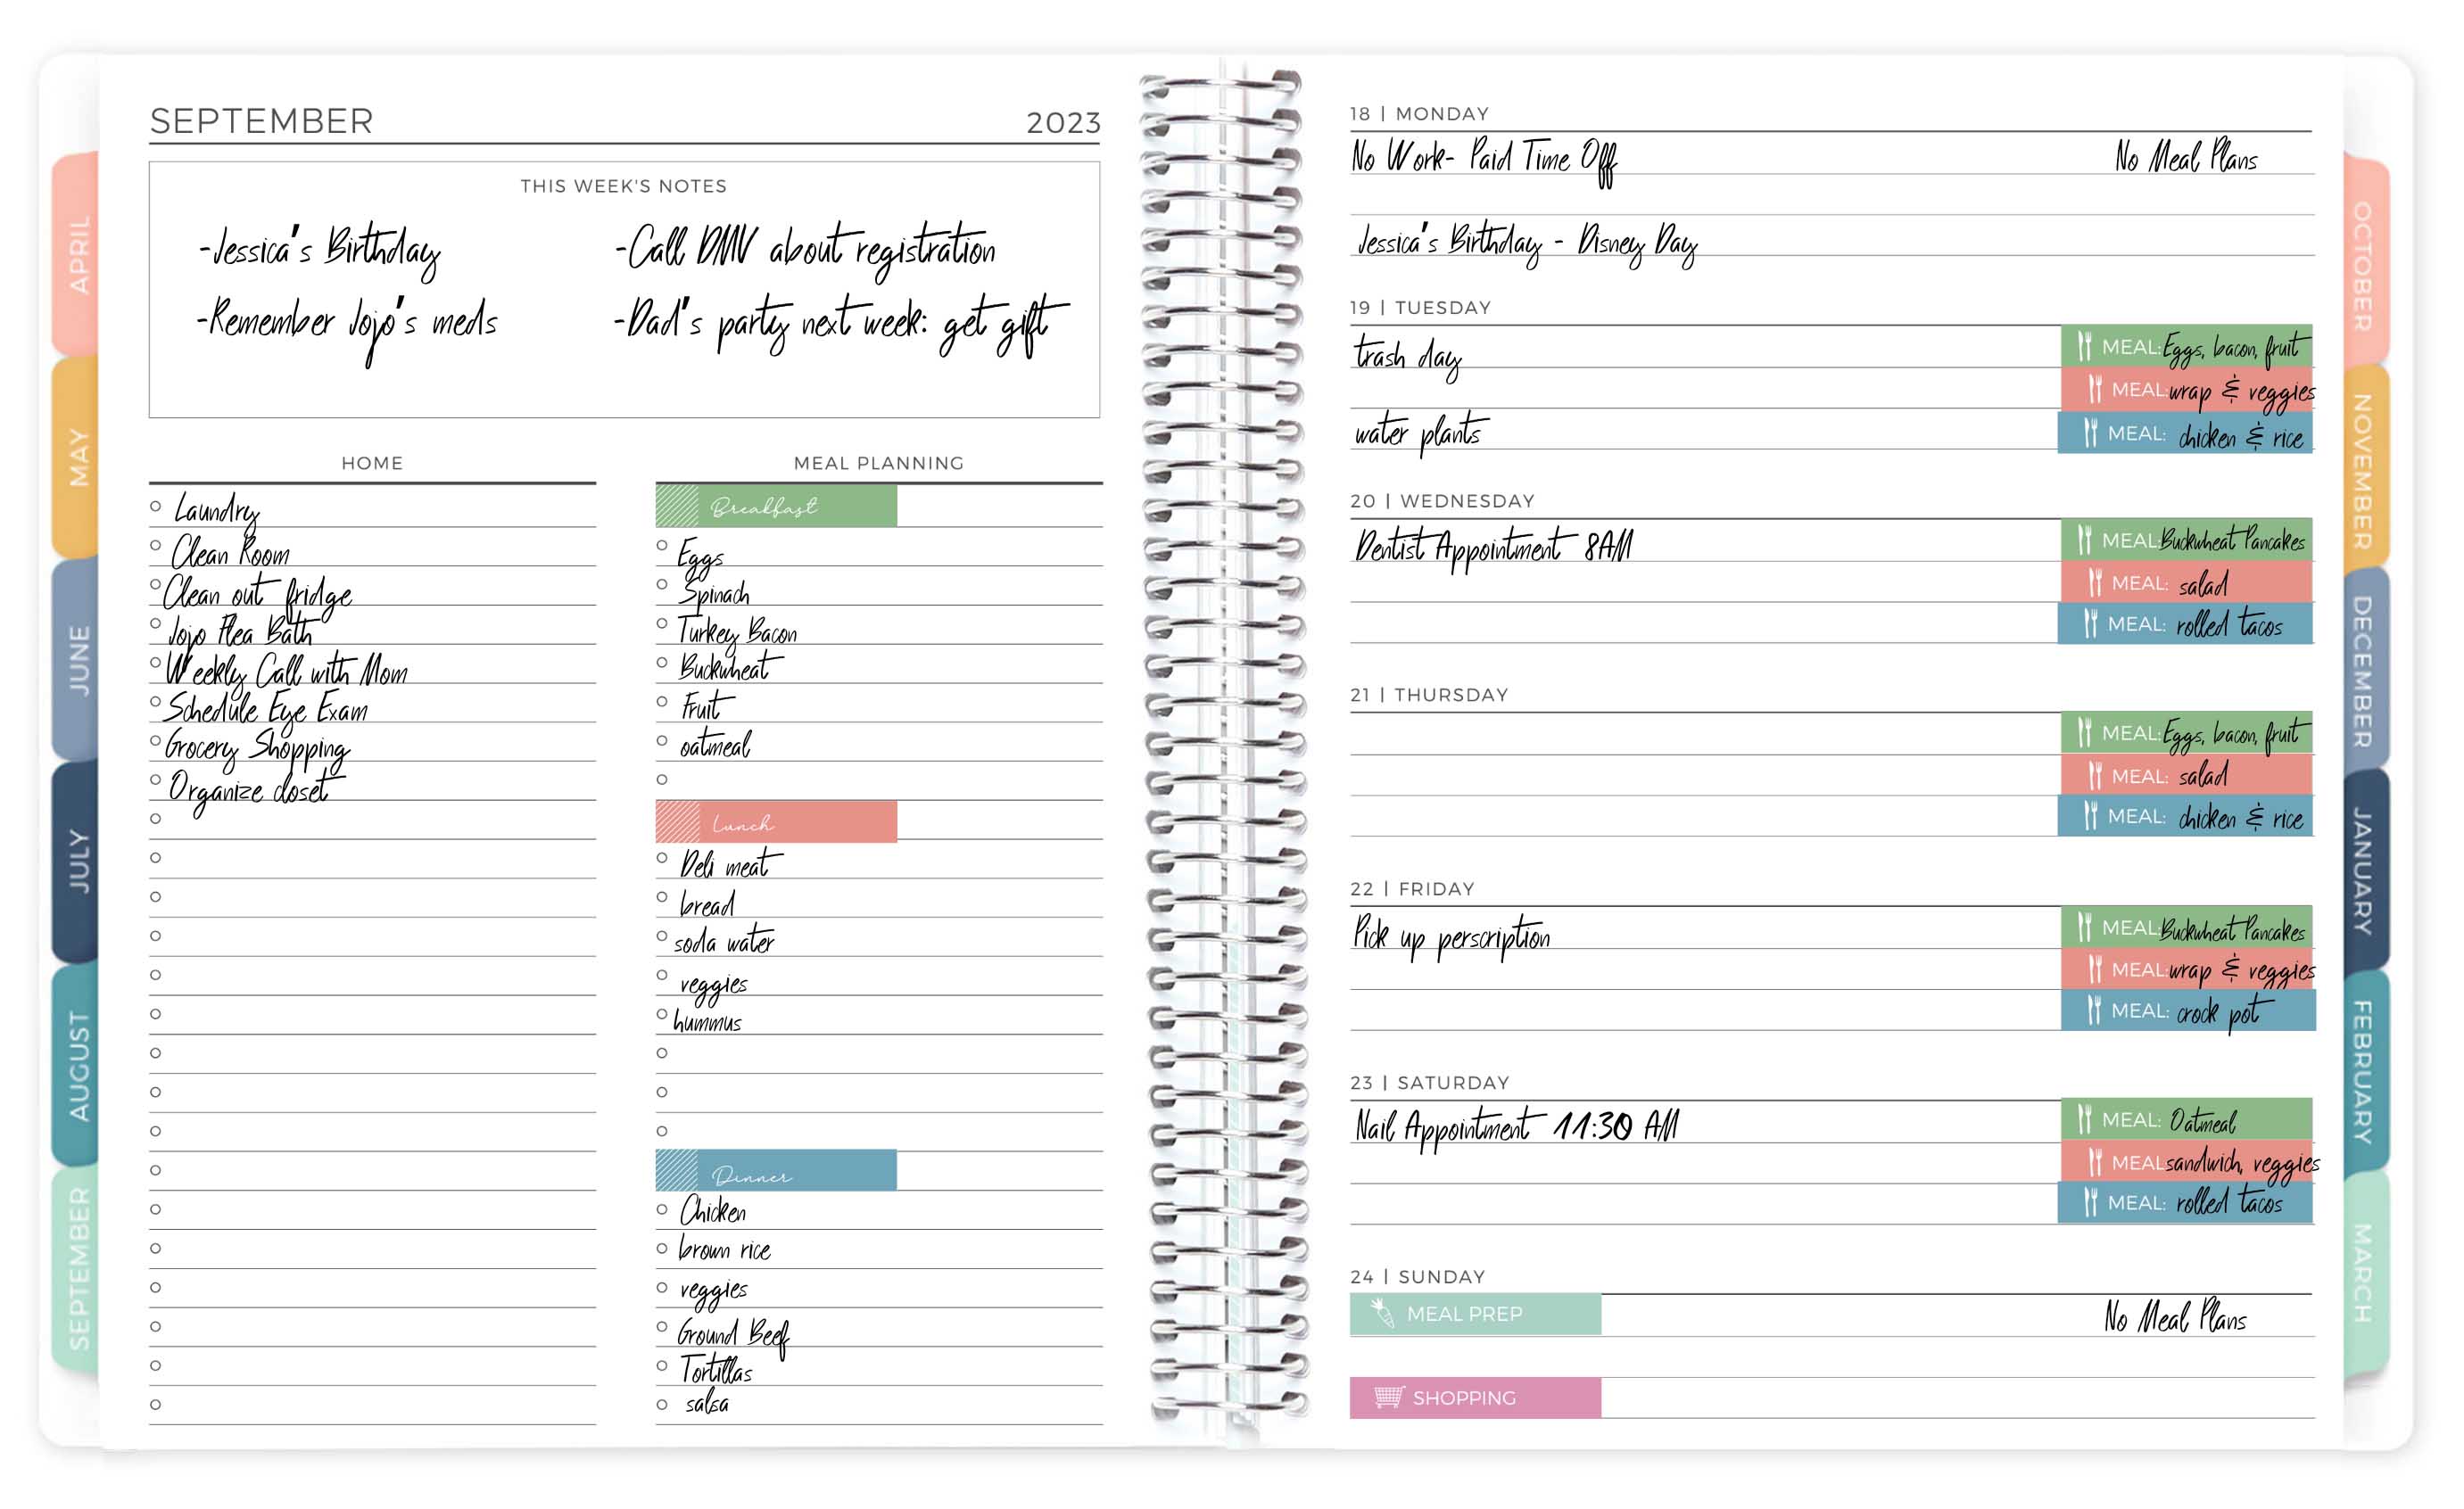 SEPTEMBER 2023
THIS WEEK'S NOTES
-Jessica's Birthday
-Remember Jojo's meds
-Call DMV about registration
-Dad's party next week: get gift
HOME
Laundry
Clean Room
Clean out fridge
Jojo Flea Bath
Weekly Call with Mom
Schedule Eye Exam
Grocery Shopping
Organize closet
MEAL PLANNING
Breakfast
Eggs
Spinach
Turkey Bacon
Buckwheat
Fruit
oatmeal
Lunch
Deli meat
bread
soda water
veggies
hummus
Dinner
Chicken
brown rice
veggies
Ground Beef
Tortillas
salsa
18 | MONDAY
No Work- Paid Time Off
No Meal Plans
Jessica's Birthday - Disney Day
19 | TUESDAY
trash day
MEAL: Eggs, bacon, fruit
MEAL: wrap & veggies
water plants
MEAL: chicken & rice
20 | WEDNESDAY
Dentist Appointment 8AM
MEAL: Buckwheat Pancakes
MEAL: salad
MEAL: rolled tacos
21 | THURSDAY
MEAL: Eggs, bacon, fruit
MEAL: salad
MEAL: chicken & rice
22 | FRIDAY
Pick up perscription
MEAL: Buckwheat Pancakes
MEAL: wrap & veggies
MEAL: crock pot
23 | SATURDAY
Nail Appointment 11:30 AM
MEAL: Oatmeal
MEAL sandwich, veggies
MEAL: rolled tacos
24 | SUNDAY
MEAL PREP
No Meal Plans
SHOPPING
APRIL
MAY
JUNE
JULY
AUGUST
SEPTEMBER
OCTOBER
NOVEMBER
DECEMBER
JANUARY
FEBRUARY
MARCH